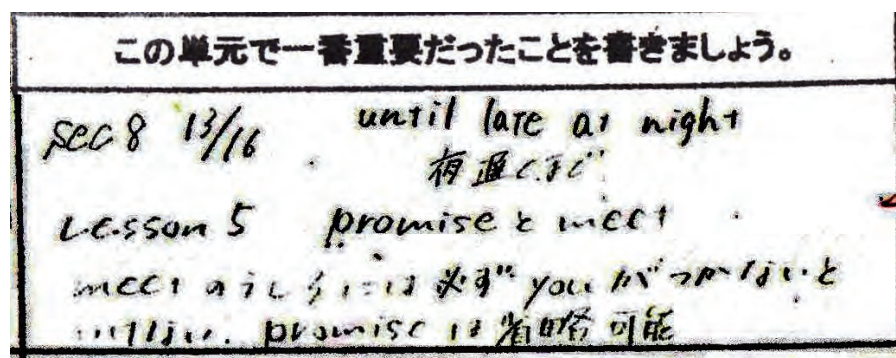 この単元で一番重要だったことを書きましょう。
sec 8 13/16 until late at night
夜遅くまで
Lesson 5 promiseとmeet
meetのうしろには必ずyouがつかないと
いけない. promiseは省略可能